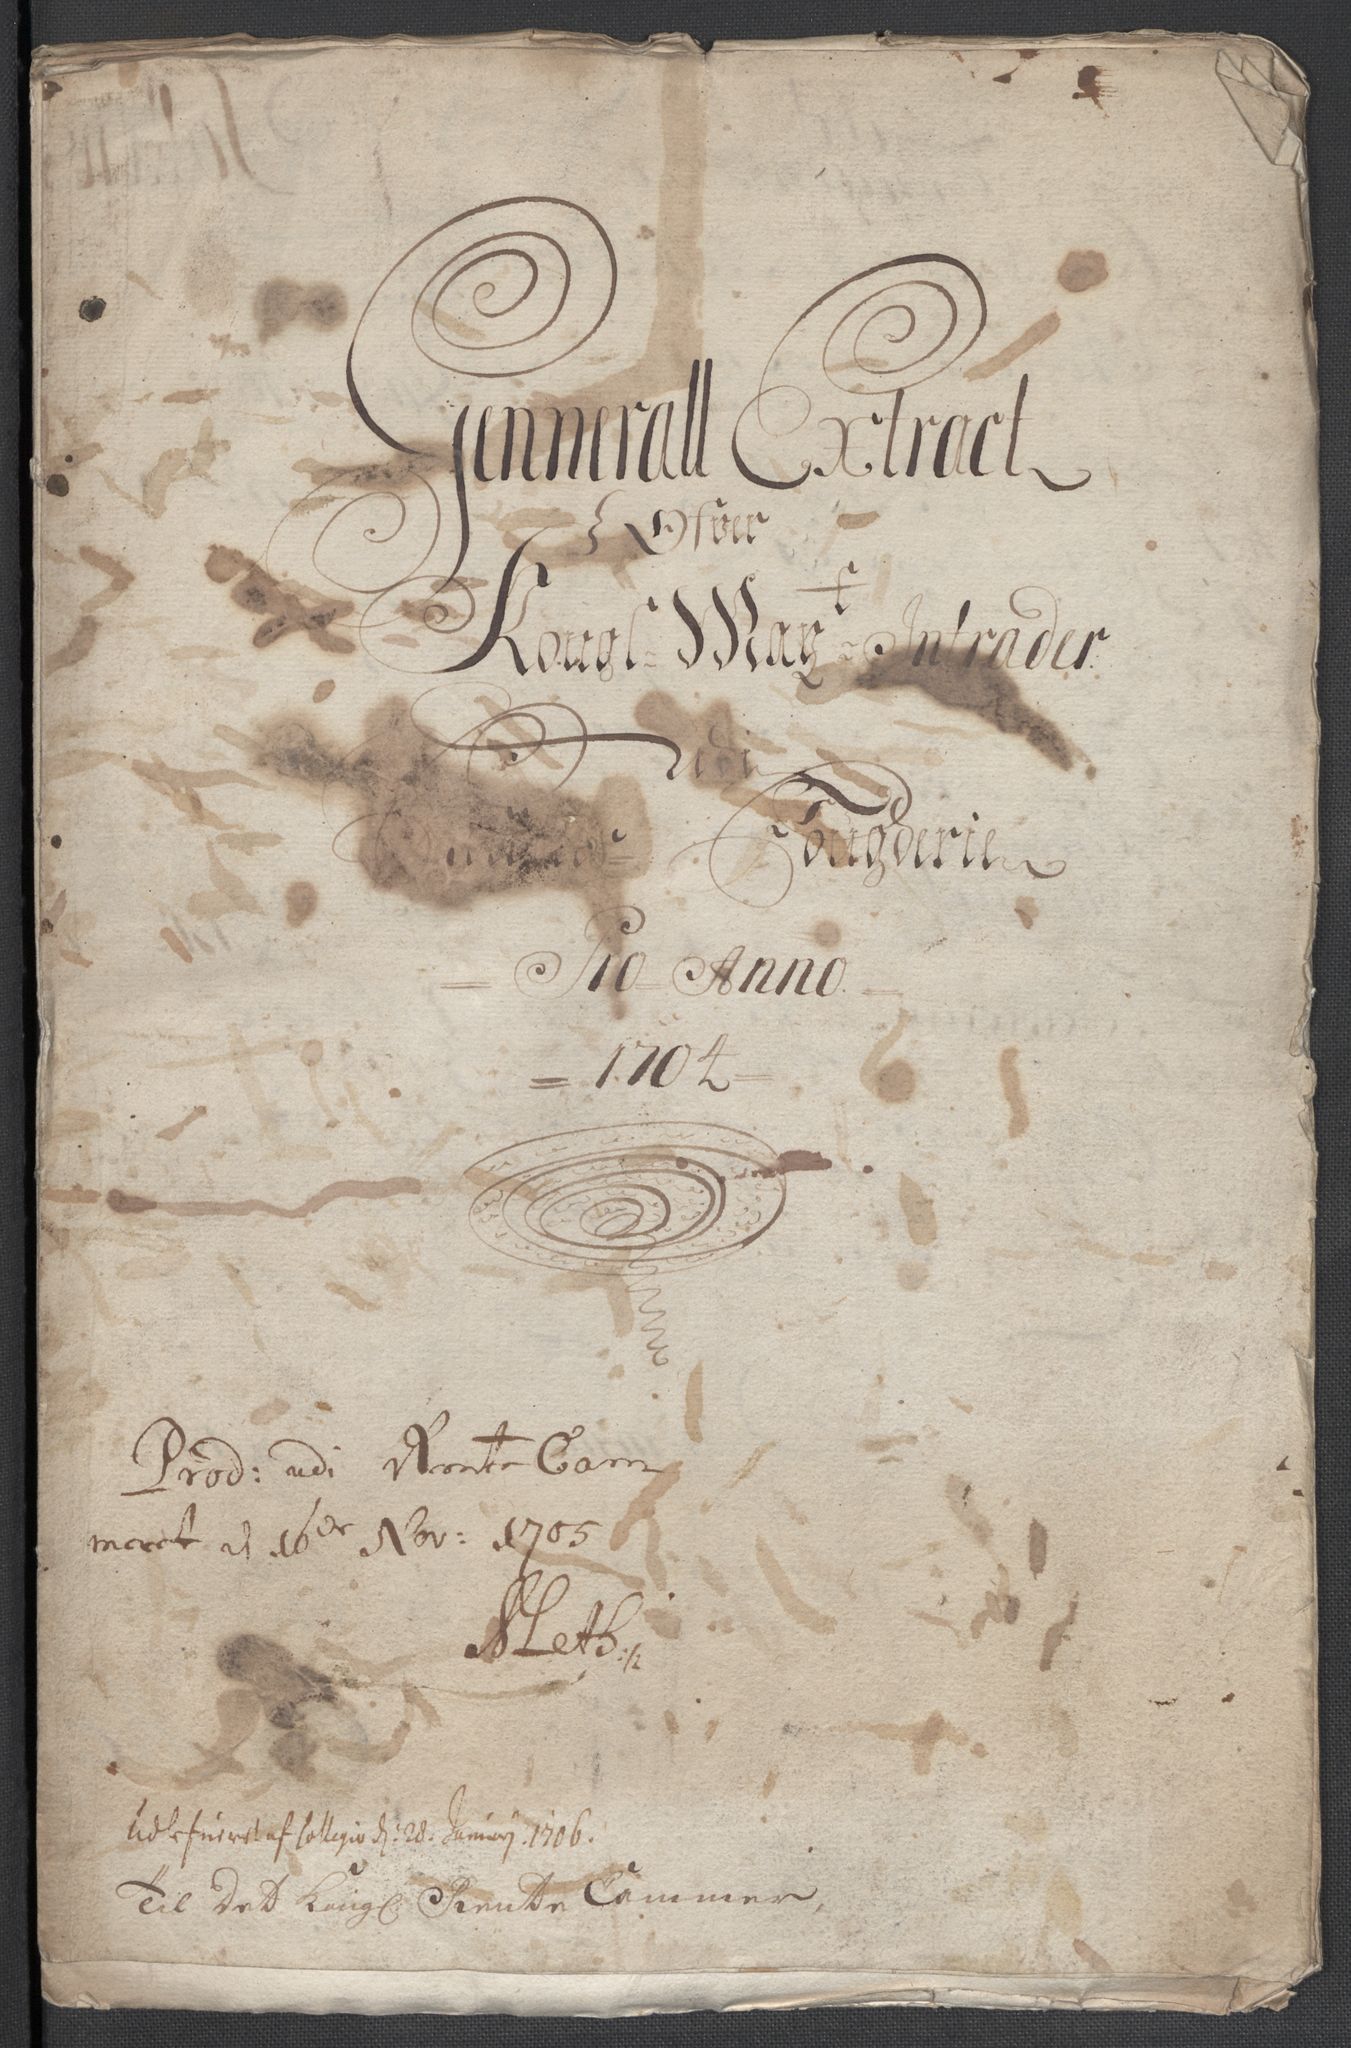 Gennerall Extract
Ofver
Kongl: Mayt: Intrader
udi
Fougderie
Pro Anno
1704
Prod: udi Rente Cam
meret d 16de Nov: 1705
Udlefueret af Collegio d: 28. January. 1706.
Til Det Kongl: Rente Cammer,